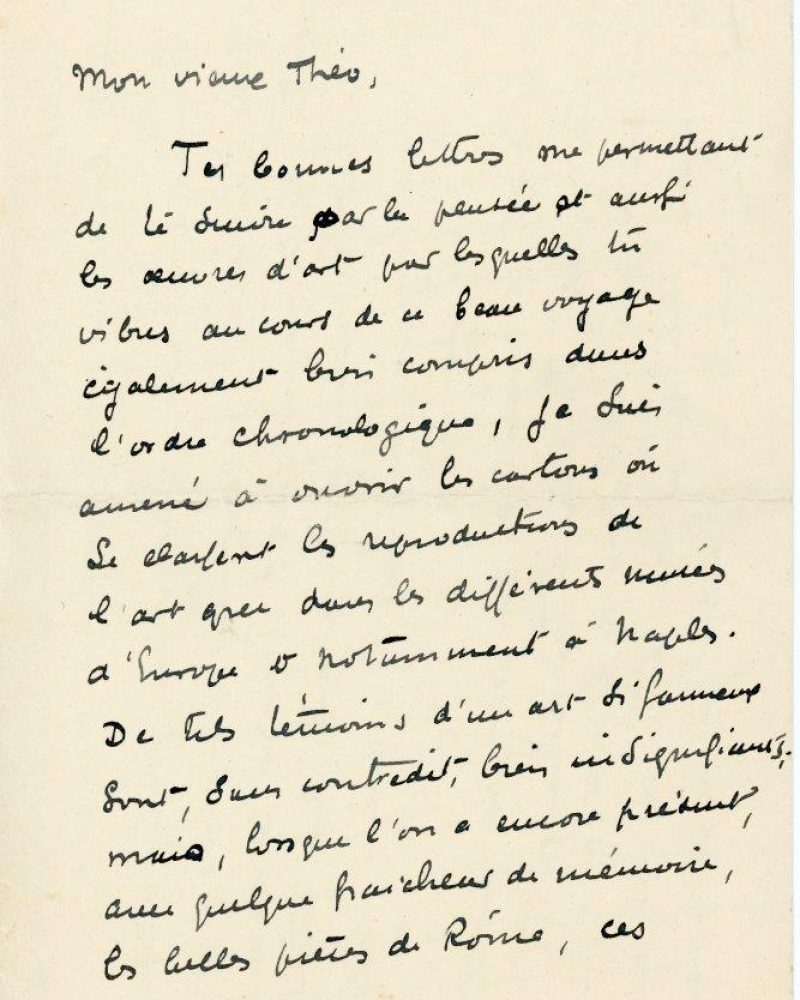 Mon vieux Théo,
Tes bonnes lettres me permettant
de te suivre par la pensée et aussi
les œuvres d'art par lesquelles tu
vibres au cours de ce beau voyage
également bien compris dans
l'ordre chronologique, je suis
amené à ouvrir les cartons où
se classent les reproductions de
l'art grec dans les différents musées
d'Europe & notamment à Naples.
De tels témoins d'un art si fameux
sont, sans contredit, bien insignifiants,
mais, lorsque l'on a encore présent,
avec quelque fraîcheur de mémoire,
les belles pièces de Rome, ces